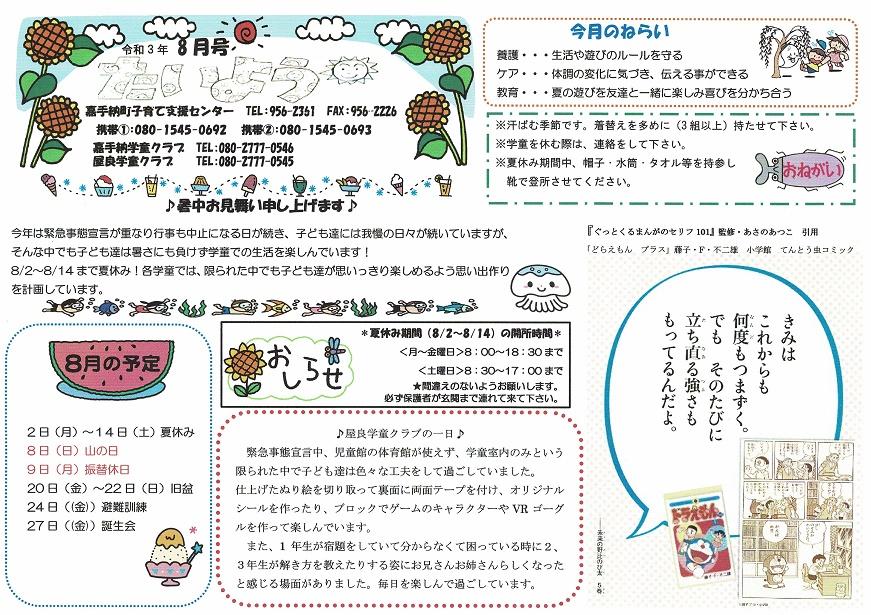 令和3年 8月号
たいよう
嘉手納町子育て支援センター TEL:956-2361 FAX:956-2226
携帯①:080-1545-0692 携帯②:080-1545-0693
嘉手納学童クラブ TEL:080-2777-0546
屋良学童クラブ TEL:080-2777-0545
♪暑中お見舞い申し上げます♪
今月のねらい
養護・・・生活や遊びのルールを守る
ケア・・・体調の変化に気づき、伝える事ができる
教育・・・夏の遊びを友達と一緒に楽しみ喜びを分かち合う
※汗ばむ季節です。着替えを多めに(3組以上)持たせて下さい。
※学童を休む際は、連絡をして下さい。
※夏休み期間中、帽子・水筒・タオル等を持参し
靴で登所させてください。
おねがい
今年は緊急事態宣言が重なり行事も中止になる日が続き、子ども達には我慢の日々が続いていますが、
そんな中でも子ども達は暑さにも負けず学童での生活を楽しんでいます!
8/2~8/14まで夏休み!各学童では、限られた中でも子ども達が思いっきり楽しめるよう思い出作り
を計画しています。
8月の予定
2日(月)~14日(土)夏休み
8日(日)山の日
9日(月)振替休日
20日(金)~22日(日)旧盆
24日((金))避難訓練
27日((金))誕生会
おしらせ
*夏休み期間(8/2~8/14)の開所時間*
<月~金曜日>8:00~18:30まで
<土曜日>8:30~17:00まで
★間違えのないようお願いします。
必ず保護者が玄関まで連れて来て下さい。
♪屋良学童クラブの一日♪
緊急事態宣言中、児童館の体育館が使えず、学童室内のみという
限られた中で子ども達は色々な工夫をして過ごしていました。
仕上げたぬり絵を切り取って裏面に両面テープを付け、オリジナル
シールを作ったり、ブロックでゲームのキャラクターやVRゴーグ
ルを作って楽しんでいます。
また、1年生が宿題をしていて分からなくて困っている時に2、
3年生が解き方を教えたりする姿にお兄さんお姉さんらしくなった
と感じる場面がありました。毎日を楽しんで過ごしています。
『ぐっとくるまんがのセリフ101』監修・あさのあつこ 引用
「どらえもん プラス」藤子・F・不二雄 小学館 てんとう虫コミック
きみは
これからも
何度もつまずく。
でも そのたびに
立ち直る強さも
もってるんだよ。
ドラえもん